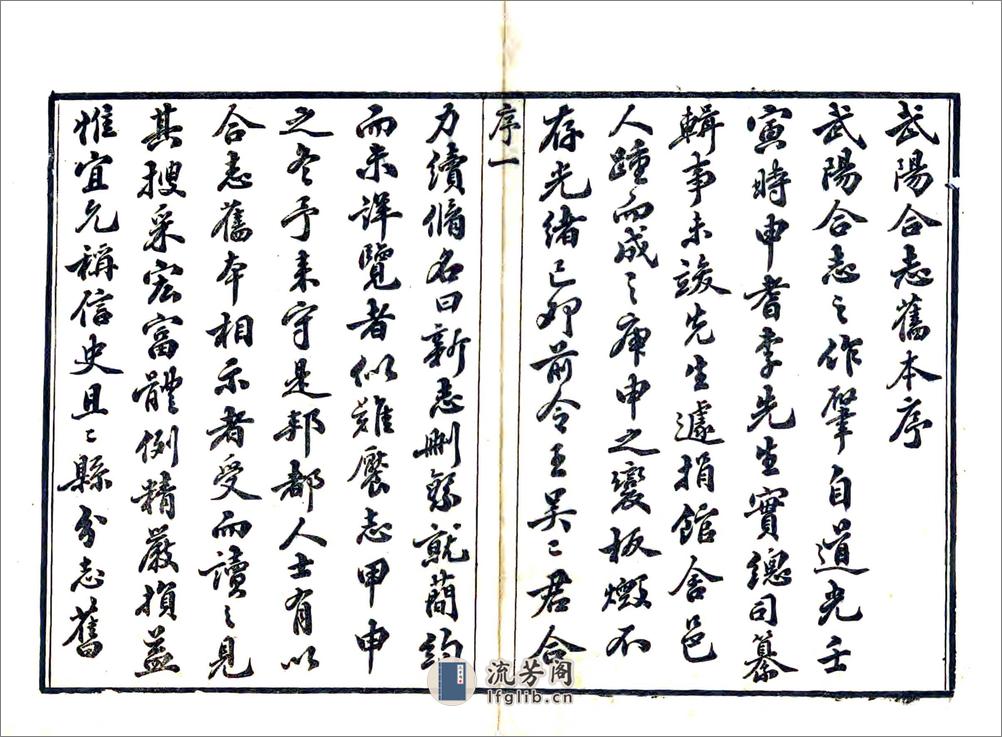 武陽合志舊本序
武陽合志之作肇自道光壬
寅時申耆李先生實總司纂
輯事未竣先生遽捐館舍邑
人踵而成之庚申之變板燬不
存光緒己卯前令王吴二君合
序一
力續脩名曰新志刪繁就簡約
而未詳覽者似難饜志甲申
之冬予来守是邦都人士有以
合志舊本相示者受而讀之見
其搜采宏富體例精嚴損益
惟宜允稱信史且二縣分志舊
流芳阁
lfglib.cn